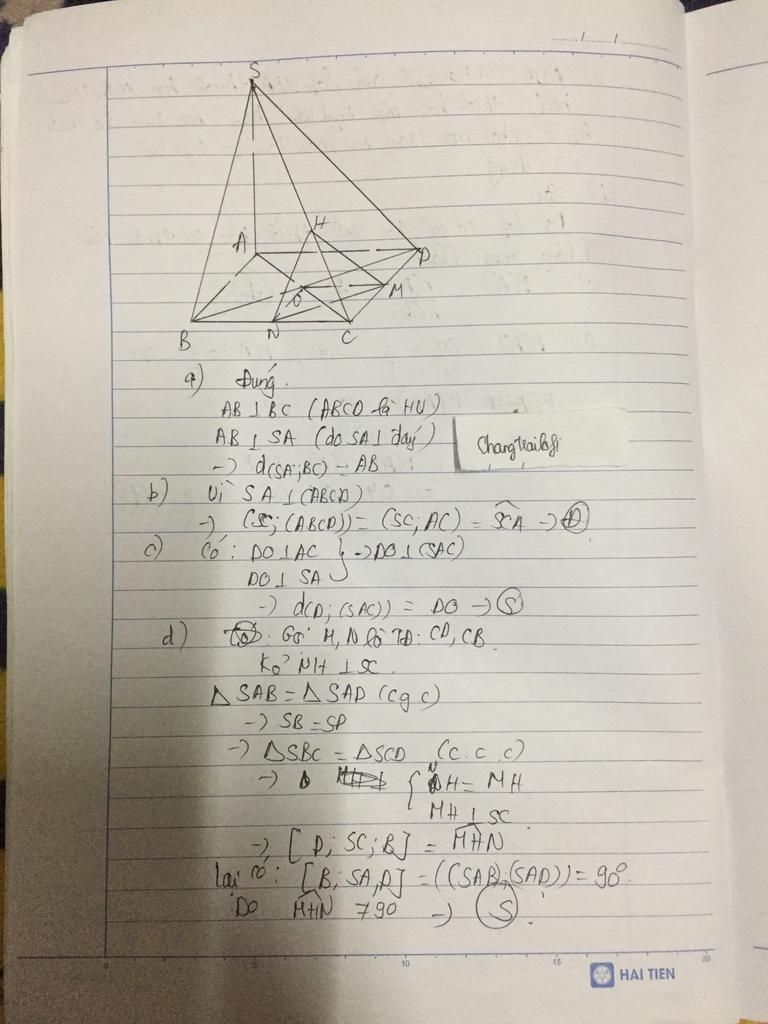 S
H
A
D
O
M
B
N
C
a) Đúng.
AB ⊥ BC (ABCD là HV)
AB ⊥ SA (do SA ⊥ đáy)
-> d(SA;BC) = AB
b) Vì SA ⊥ (ABCD)
-> (SC; (ABCD)) = (SC; AC) = SCA -> Đ
c) Có: DO ⊥ AC } -> DO ⊥ (SAC)
DO ⊥ SA
-> d(D; (SAC)) = DO -> S
d) Gọi M, N là TĐ: CD, CB
Kẻ NH ⊥ SC
Δ SAB = Δ SAD (c g c)
-> SB = SD
-> ΔSBC = ΔSCD (c. c. c)
-> { NH = MH
MH ⊥ SC
-> [D; SC; B] = MHN
Lại có: [B; SA, D] = ((SAB);(SAD)) = 90°.
Do MHN > 90 -> S
0 5 10 15 20
HAI TIEN